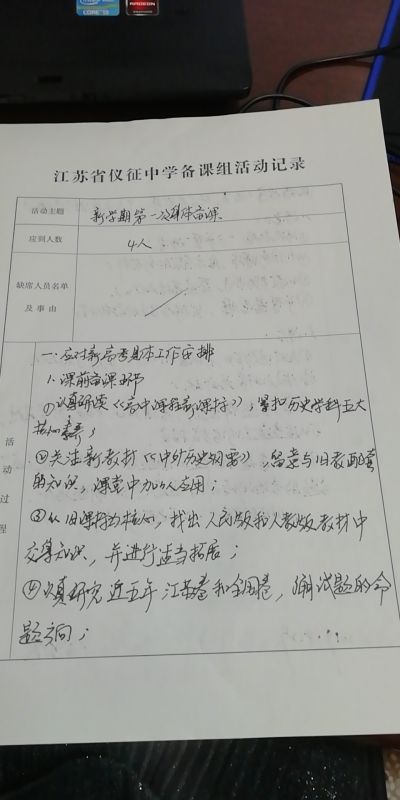 intel
CORE i5
RADEON
江苏省仪征中学备课组活动记录
活动主题 新学期第一次集体备课
应到人数 4人
缺席人员名单
及事由
活动过程
一、应对新高考具体工作安排
1、课前备课环节
①认真研读《高中课程新课标》，紧扣历史学科五大
核心素养；
②关注新教材《中外历史纲要》，留意与旧教配套
的知识，课堂中加以应用；
③以旧课标为核心，找出人民版和人教版教材中
交集知识，并进行适当拓展；
④认真研究近五年江苏卷和全国卷，试题的命
题方向；